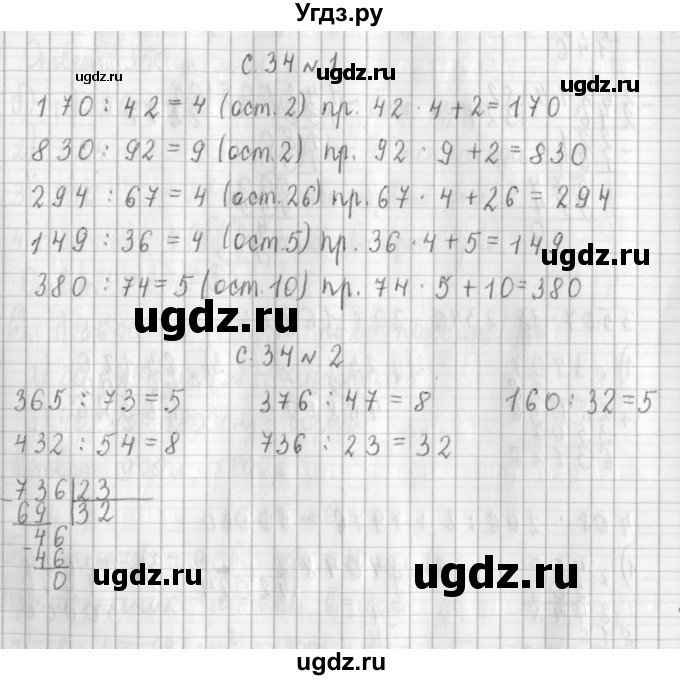 Угдз.ру
ugdz.ru ugdz.ru
с. 34 № 1
170 : 42 = 4 (ост. 2) пр. 42 · 4 + 2 = 170
830 : 92 = 9 (ост. 2) пр. 92 · 9 + 2 = 830
294 : 67 = 4 (ост. 26) пр. 67 · 4 + 26 = 294
149 : 36 = 4 (ост. 5) пр. 36 · 4 + 5 = 149
ugdz.ru
380 : 74 = 5 (ост. 10) пр. 74 · 5 + 10 = 380
ugdz.ru
с. 34 № 2
ugdz.ru
365 : 73 = 5 376 : 47 = 8 160 : 32 = 5
432 : 54 = 8 736 : 23 = 32
736 23
69 32
46
46
0
ugdz.ru ugdz.ru
ugdz.ru